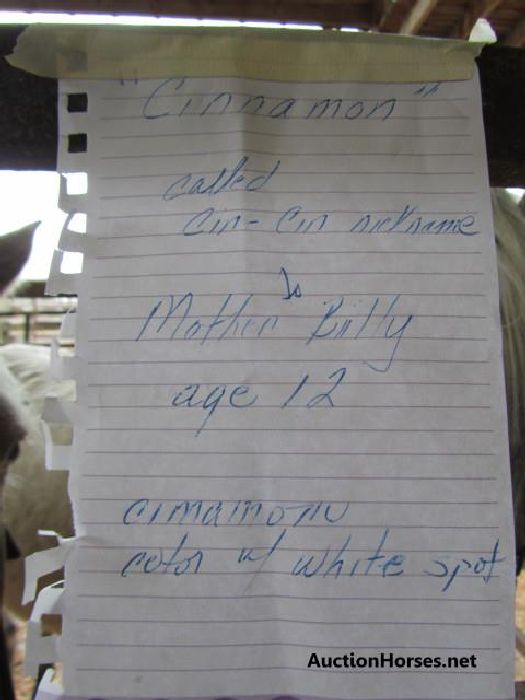 "Cinnamon"
called
Cin-Cin nickname
to
Mother Billy
age 12
cinamonu
color w/ white spot
AuctionHorses.net